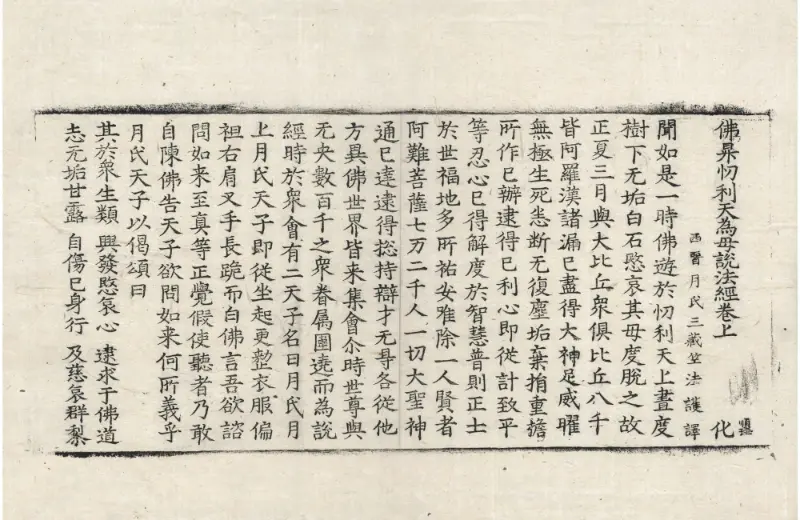 佛昇忉利天為母說法經卷上 化
西晉月氏三藏竺法護譯
聞如是一時佛遊於忉利天上晝度
樹下无垢白石愍哀其母度脫之故
正夏三月與大比丘衆俱比丘八千
皆阿羅漢諸漏已盡得大神足威曜
無極生死恚断无復塵垢棄捐重擔
所作已辦逮得已利心即從計致平
等忍心已得解度於智慧普則正士
於世福地多所祐安雅除一人賢者
阿難菩薩七万二千人一切大聖神
通已達逮得捴持辯才无㝵各從他
方異佛世界皆来集會尒時世尊與
无央數百千之衆眷属圍遶而為說
經時於衆會有二天子名曰月氏月
上月氏天子即從坐起更整衣服偏
袒右肩叉手長跪而白佛言吾欲諮
問如来至真等正覺假使聽者乃敢
自陳佛告天子欲問如来何所義乎
月氏天子以偈頌曰
其於衆生類 興發愍哀心 逮求于佛道
志无垢甘露 自傷已身行 及慈哀群梨